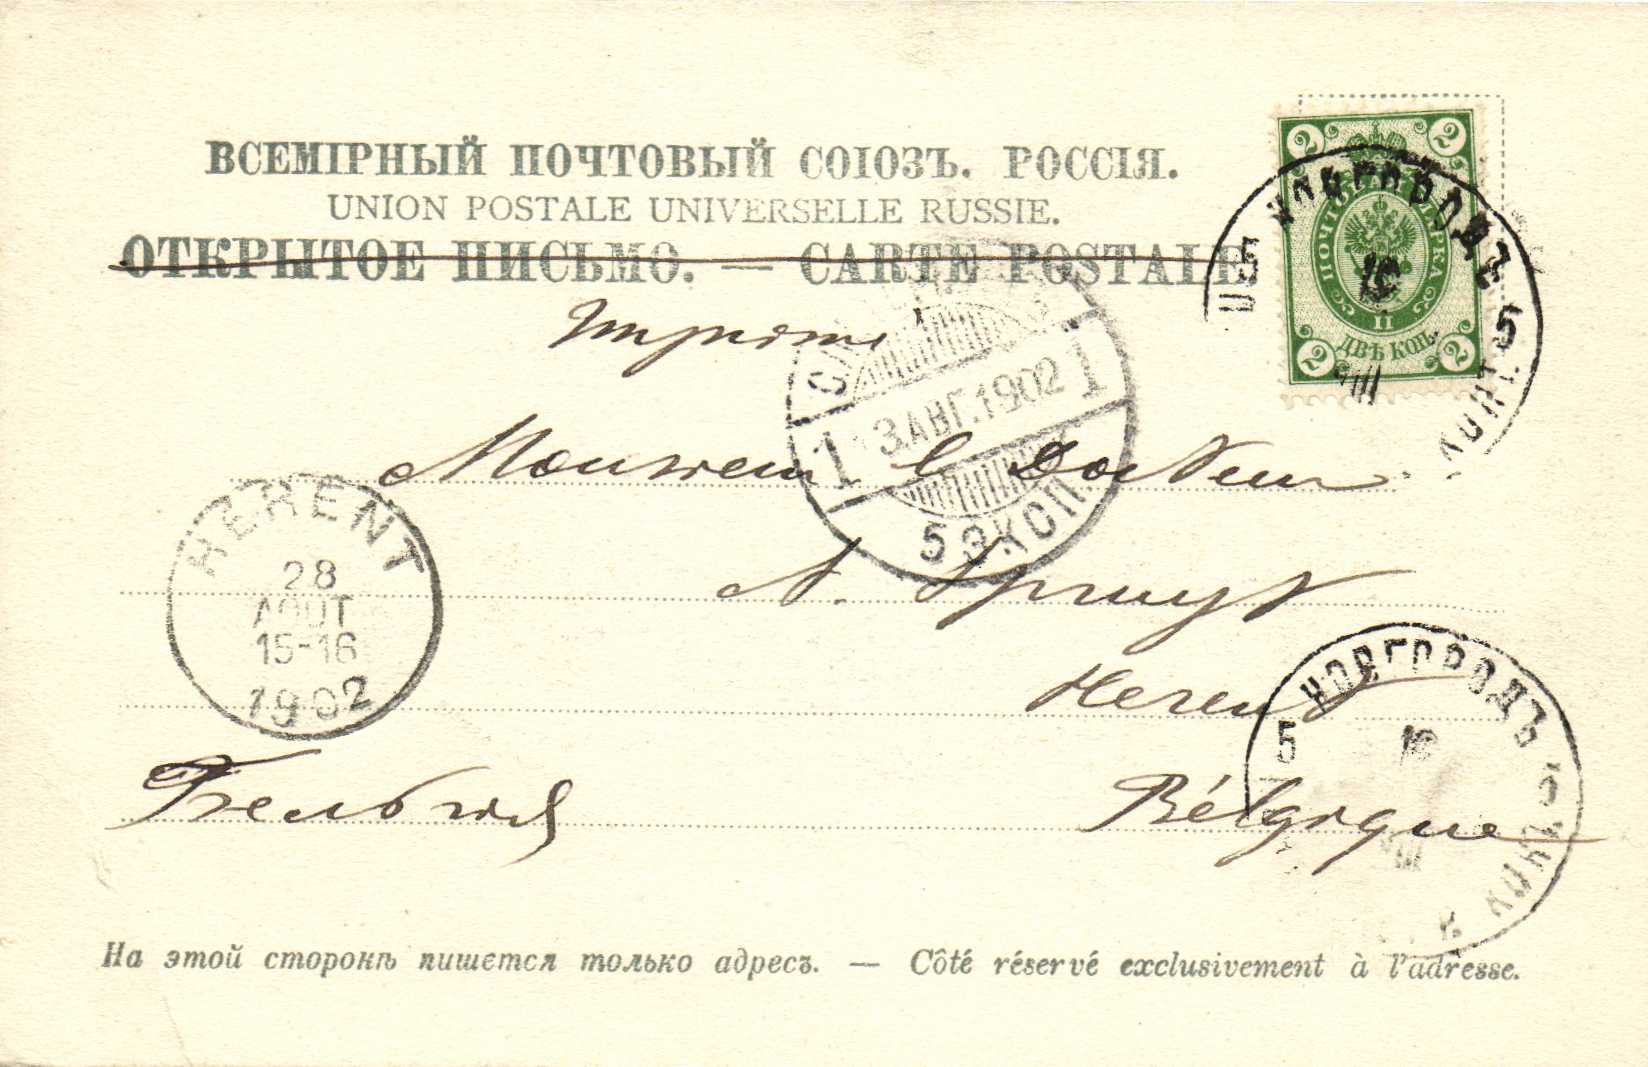 ВСЕМІРНЫЙ ПОЧТОВЫЙ СОЮЗЪ. РОССІЯ.
UNION POSTALE UNIVERSELLE RUSSIE.
ОТКРЫТОЕ ПИСЬМО. — CARTE POSTALE
2 2
ПОЧТОВАЯ МАРКА
II
ДВѢ КОП.
2 2
НОВГОРОДЪ
5 5
10
VIII
1 13.АВГ.1902 1
5 ЭКСП.
Monsieur le Docteur
HERENT
28
AOUT
15-16
1902
A.
Herent
НОВГОРОДЪ
5 5
10
VIII
Бельгія
Bélgique
На этой сторонѣ пишется только адресъ. — Côté réservé exclusivement à l'adresse.